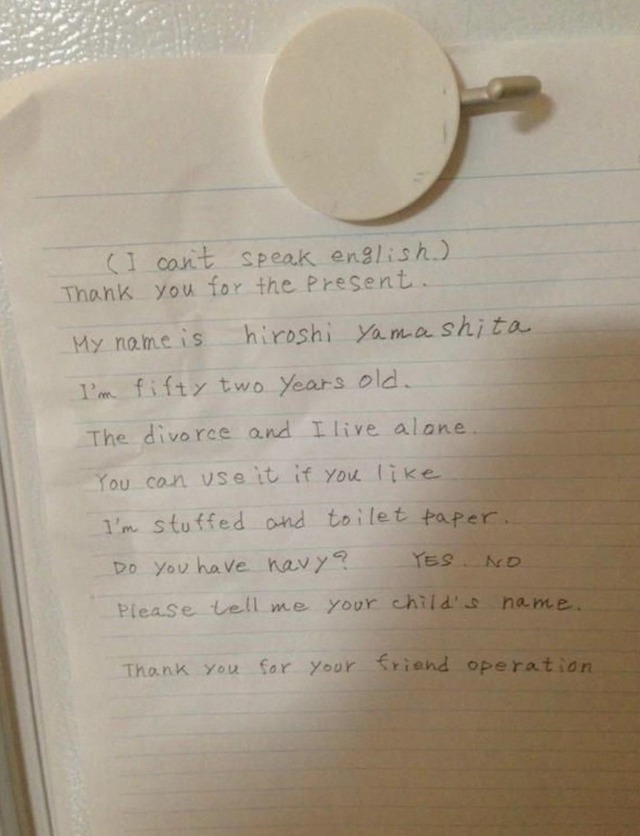 (I can't speak english.)
Thank you for the present.
My name is hiroshi yamashita
I'm fifty two years old.
The divorce and I live alone.
You can use it if you like
I'm stuffed and toilet paper.
Do you have navy? YES. NO
Please tell me your child's name.
Thank you for your friend operation